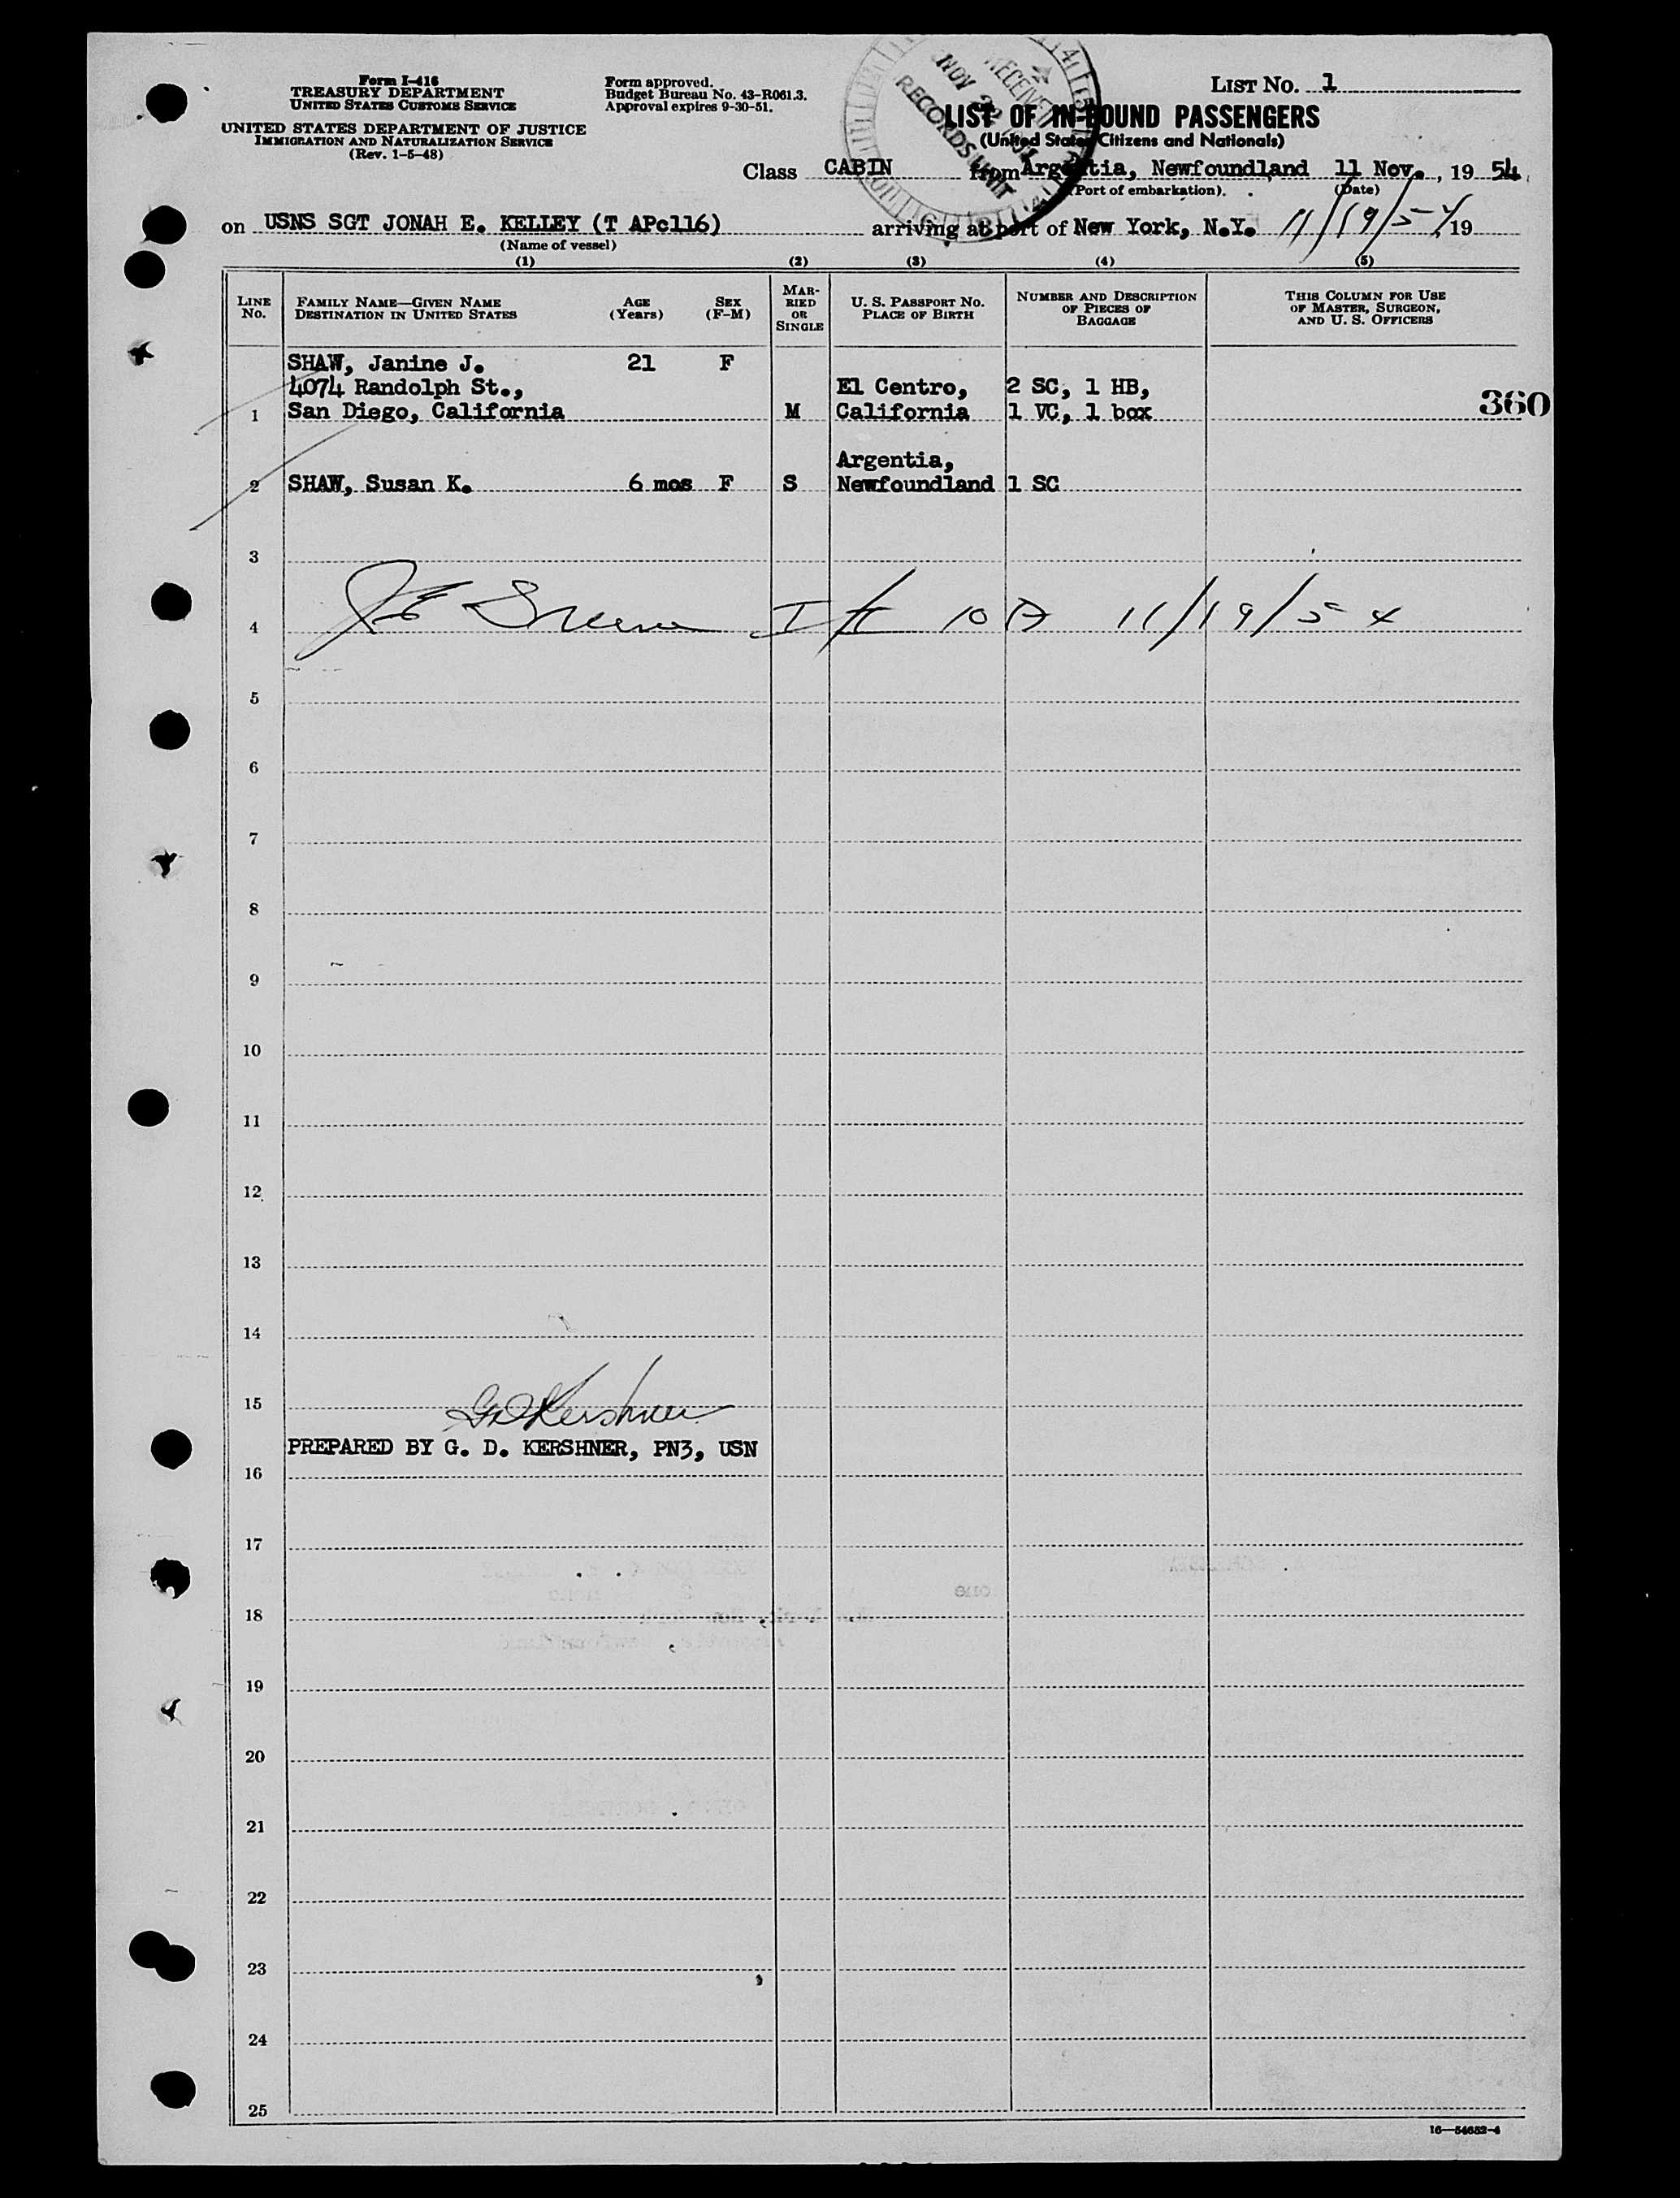 Form I-416
TREASURY DEPARTMENT
UNITED STATES CUSTOMS SERVICE
UNITED STATES DEPARTMENT OF JUSTICE
IMMIGRATION AND NATURALIZATION SERVICE
(Rev. 1-5-48)
Form approved.
Budget Bureau No. 43-R061.3.
Approval expires 9-30-51.
RECEIVED
NOV
RECORDS UNIT
LIST NO. 1
LIST OF IN-BOUND PASSENGERS
(United States Citizens and Nationals)
Class CABIN from Argentia, Newfoundland 11 Nov., 19 54
(Port of embarkation). (Date)
on USNS SGT JONAH E. KELLEY (T APc116) arriving at port of New York, N.Y. 11/19/54, 19
(Name of vessel)
(1) (2) (3) (4) (5)
LINE NO.
FAMILY NAME—GIVEN NAME
DESTINATION IN UNITED STATES
AGE (Years)
SEX (F-M)
MARRIED OR SINGLE
U. S. PASSPORT NO.
PLACE OF BIRTH
NUMBER AND DESCRIPTION
OF PIECES OF
BAGGAGE
THIS COLUMN FOR USE
OF MASTER, SURGEON,
AND U. S. OFFICERS
SHAW, Janine J. 21 F
4074 Randolph St., El Centro, 2 SC, 1 HB,
1 San Diego, California M California 1 VC, 1 box 360
Argentia,
2 SHAW, Susan K. 6 mos F S Newfoundland 1 SC
3
4 11/19/54
5
6
7
8
9
10
11
12
13
14
15 G D Kershner
PREPARED BY G. D. KERSHNER, PN3, USN
16
17
18
19
20
21
22
23
24
25
16—54652-4